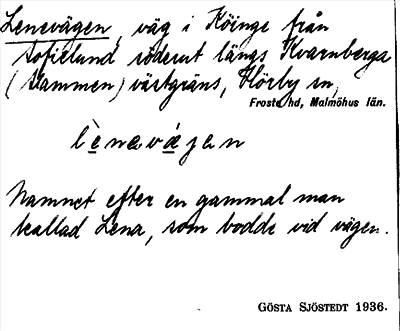 Lenevägen, väg i Köinge från
Sofielund söderut längs Kvarnberga
(Stammen) västgräns, Hörby sn,
Frosta hd, Malmöhus län.
lènavǽgan
Namnet efter en gammal man
kallad Lena, som bodde vid vägen.
GÖSTA SJÖSTEDT 1936.